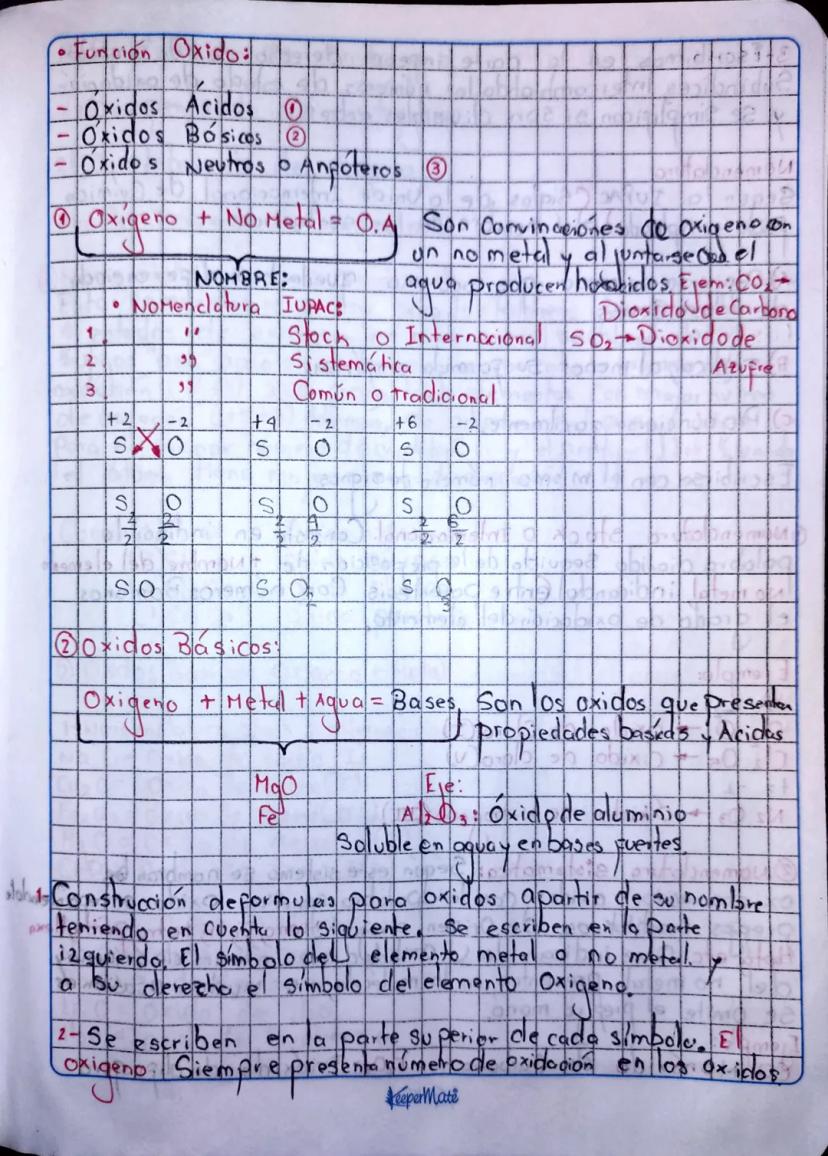 • Función Oxido:
- Óxidos Ácidos ①
- Óxidos Básicos ②
- Óxidos Neutros o Anfóteros ③
① Oxígeno + No Metal = O.A Son Convinaciones de oxigeno con
un no metal y al juntarse con el
NOMBRE:
agua producen Ejem: CO₂→
Dioxido de Carbono
• Nomenclatura IUPAC:
1. " Stock o Internacional SO₂→Dioxido de
2. " Sistemática Azufre
3. " Común o tradicional
+2 -2 +4 -2 +6 -2
S O S O S O
S O S O S O
2/2 2/2 2/2 4/2 2/2 6/2
S O S O₂ S O₃
② Oxidos Básicos:
Oxigeno + Metal + Agua = Bases. Son los oxidos que presentan
propiedades basicas y Acidas
MgO Eje:
Fe Al₂O₃: Óxido de aluminio
Soluble en agua y en bases fuertes.
1- Construcción deformulas para oxidos apartir de su nombre
teniendo en cuenta lo siguiente. Se escriben en la Parte
izquierda. El símbolo del elemento metal o no metal. y
a su derecha el símbolo del elemento Oxigeno.
2- Se escriben en la parte superior de cada símbolo. El
oxigeno Siempre presenta número de oxidación en los oxidos
KeeperMate